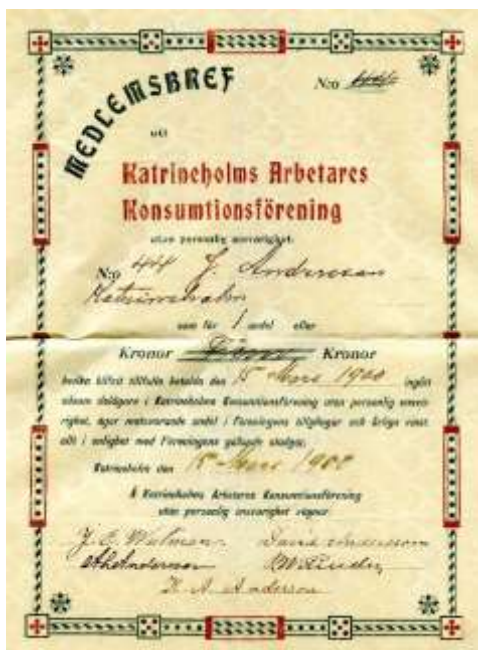 MEDLEMSBREF
N:o
uti
Katrineholms Arbetares
Konsumtionsförening
utan personlig ansvarighet.
N:o 44 J. Andersson
Katrineholm
som för 1 andel eller
Kronor Kronor
blifvit tillfullo betalda den 15 Mars 1900 ingått
såsom delägare i Katrineholms Konsumtionsförening utan personlig ansva-
righet, äger motsvarande andel i Föreningens tillgångar och årliga vinst
allt i enlighet med Föreningens gällande stadgar.
Katrineholm den 15 Mars 1900
Å Katrineholms Arbetares Konsumtionsförening
utan personlig ansvarighet vägnar
David Andersson
K. A. Andersson